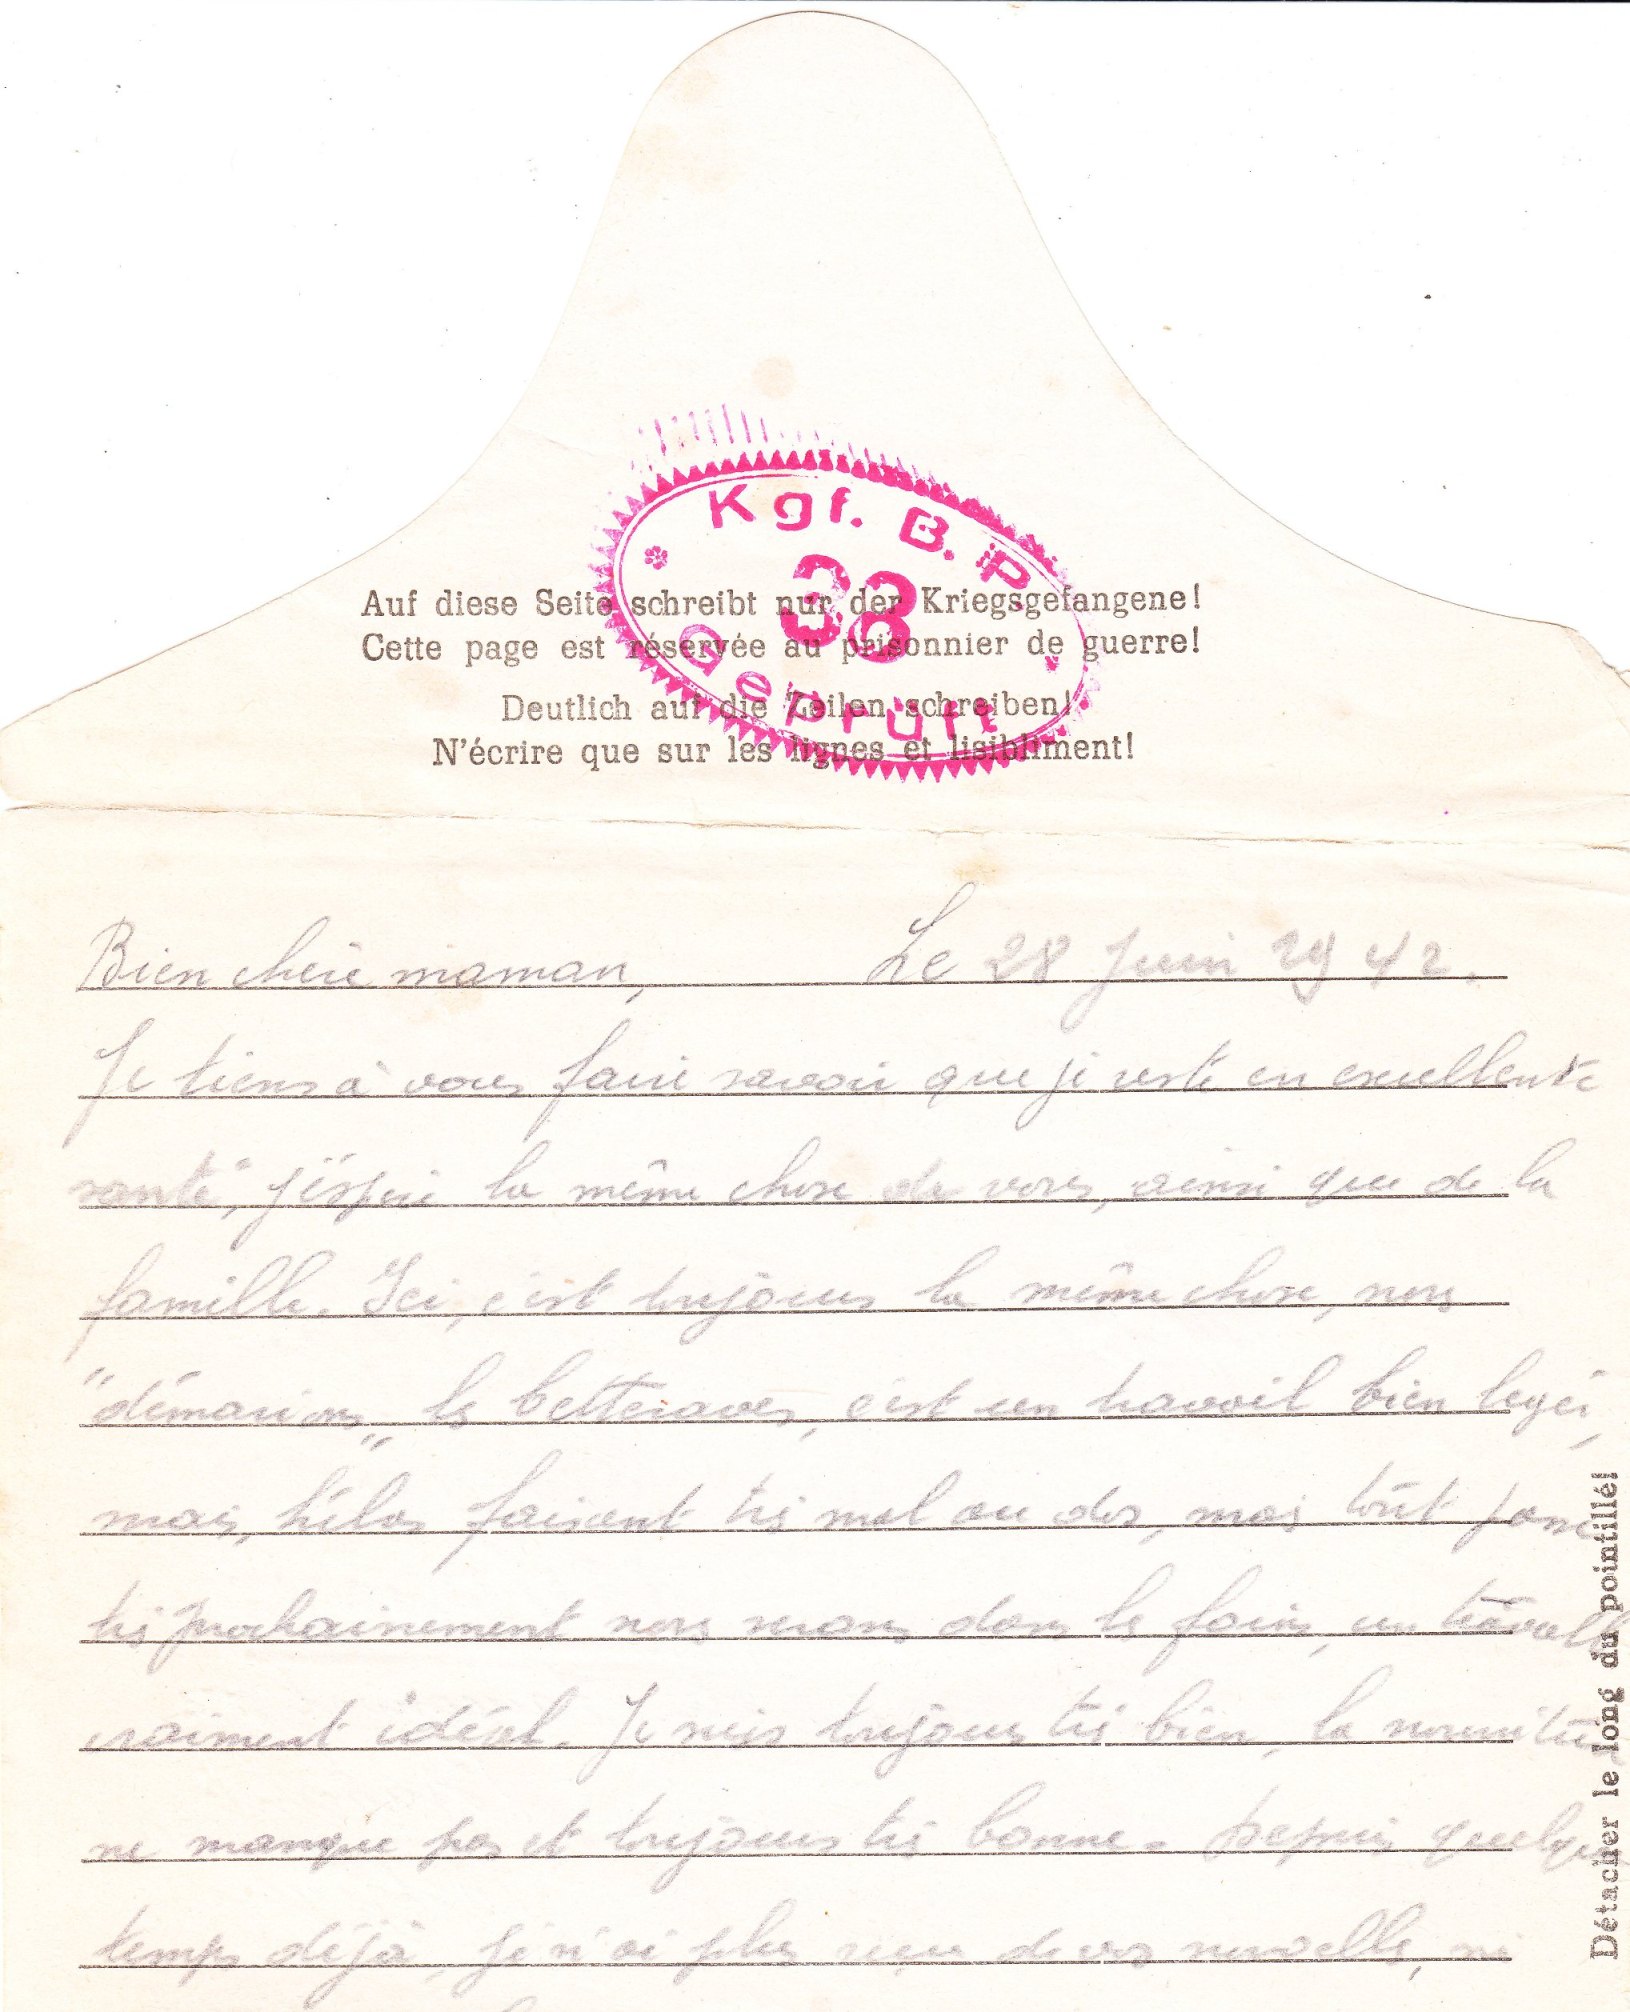 Kgf. B. P.
33
Geprüft
Auf diese Seite schreibt nur der Kriegsgefangene!
Cette page est réservée au prisonnier de guerre!
Deutlich auf die Zeilen schreiben!
N'écrire que sur les lignes et lisibliment!
Bien chère maman, Le 28 Juin 1942.
Je tiens à vous faire savoir que je reste en excellente
santé, j'éspère la même chose de vous, ainsi que de la
famille. Ici, c'est toujours la même chose, nous
"démarions" les betteraves, c'est un travail bien leger,
mais, hélas faisant très mal au dos, mais tout passe
très prochainement nous serons dans le foins, un travail
vraiment idéal. Je suis toujours très bien, la nourriture
ne manque pas et toujours très bonne. Depuis quelque
temps déjà, je n'ai plus reçu de vos nouvelle, ni
Détacher le long du pointillé!